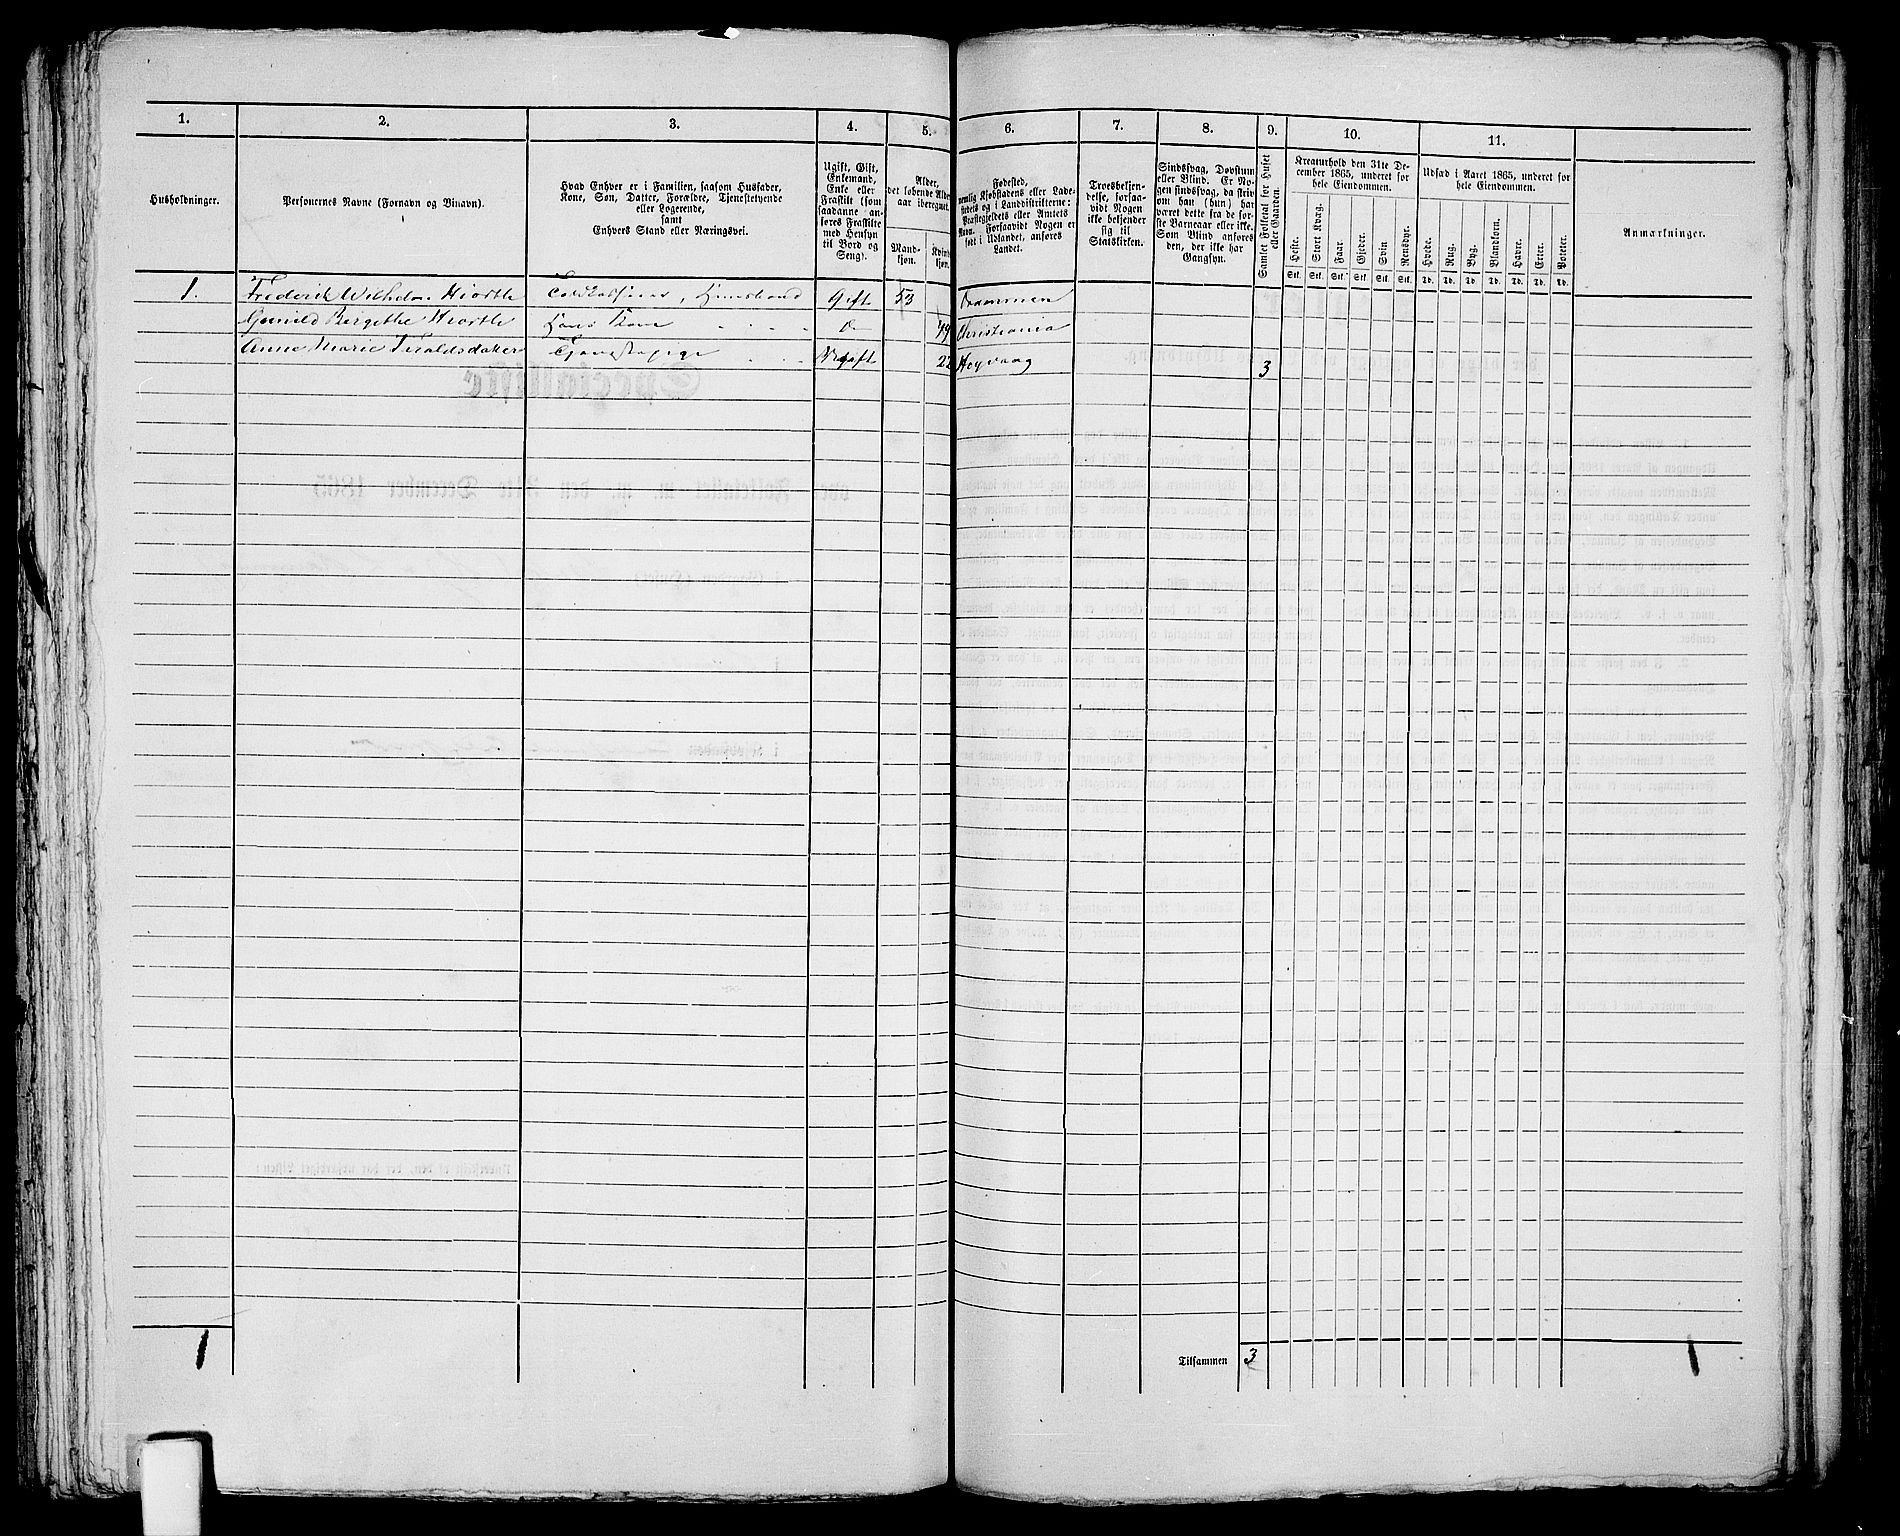 1. 2. 3. 4. 5. 6. 7. 8. 9. 10. 11.
Husholdninger.
Personernes Navne (Fornavn og Binavn).
Hvad Enhver er i Familien, saasom Husfader,
Kone, Søn, Datter, Forældre, Tjenestetyende
eller Logerende,
samt
Enhvers Stand eller Næringsvei.
Ugift, Gift,
Enkemand,
Enke eller
Fraskilt (som
saadanne an-
føres Fraskilte
med Hensyn
til Bord og
Seng).
Alder,
det løbende Alders-
aar iberegnet.
Mand-
kjøn.
Kvinde-
kjøn.
Fødested,
nemlig Kjøbstadens eller Lade-
stedets og i Landdistrikterne:
Præstegjeldets eller Amtets
Navn. Forsaavidt Nogen er
født i Udlandet, anføres
Landet.
Troesbekjen-
delse, forsaa-
vidt Nogen
ikke bekjender
sig til
Statskirken.
Sindssvag, Døvstum
eller Blind. Er No-
gen sindssvag, da skriv
om han (hun) har
været dette fra de før-
ste Barneaar eller ikke.
Som Blind anføres
den, der ikke har
Gangsyn.
Samlet Folketal for Huset
eller Gaarden.
Kreaturhold den 31te De-
cember 1865, underet for
hele Eiendommen.
Heste. Stort Kvæg. Faar. Gjeder. Svin. Rensdyr.
Stk. Stk. Stk. Stk. Stk. Stk.
Udsæd i Aaret 1865, underet for
hele Eiendommen.
Hvede. Rug. Byg. Blandkorn. Havre. Erter. Poteter.
Td. Td. Td. Td. Td. Td. Td.
Anmærkninger.
1. Frederik Wilhelm Hiorth Toldkasserer, Huusbond Gift 53 Drammen
Gunild Bergithe Hiorth Hans Kone Do 49 Christiania
Anne Marie Tharaldsdatter Tjenestepige Ugift 22 Høyvaag 3
1
Tilsammen 3
1